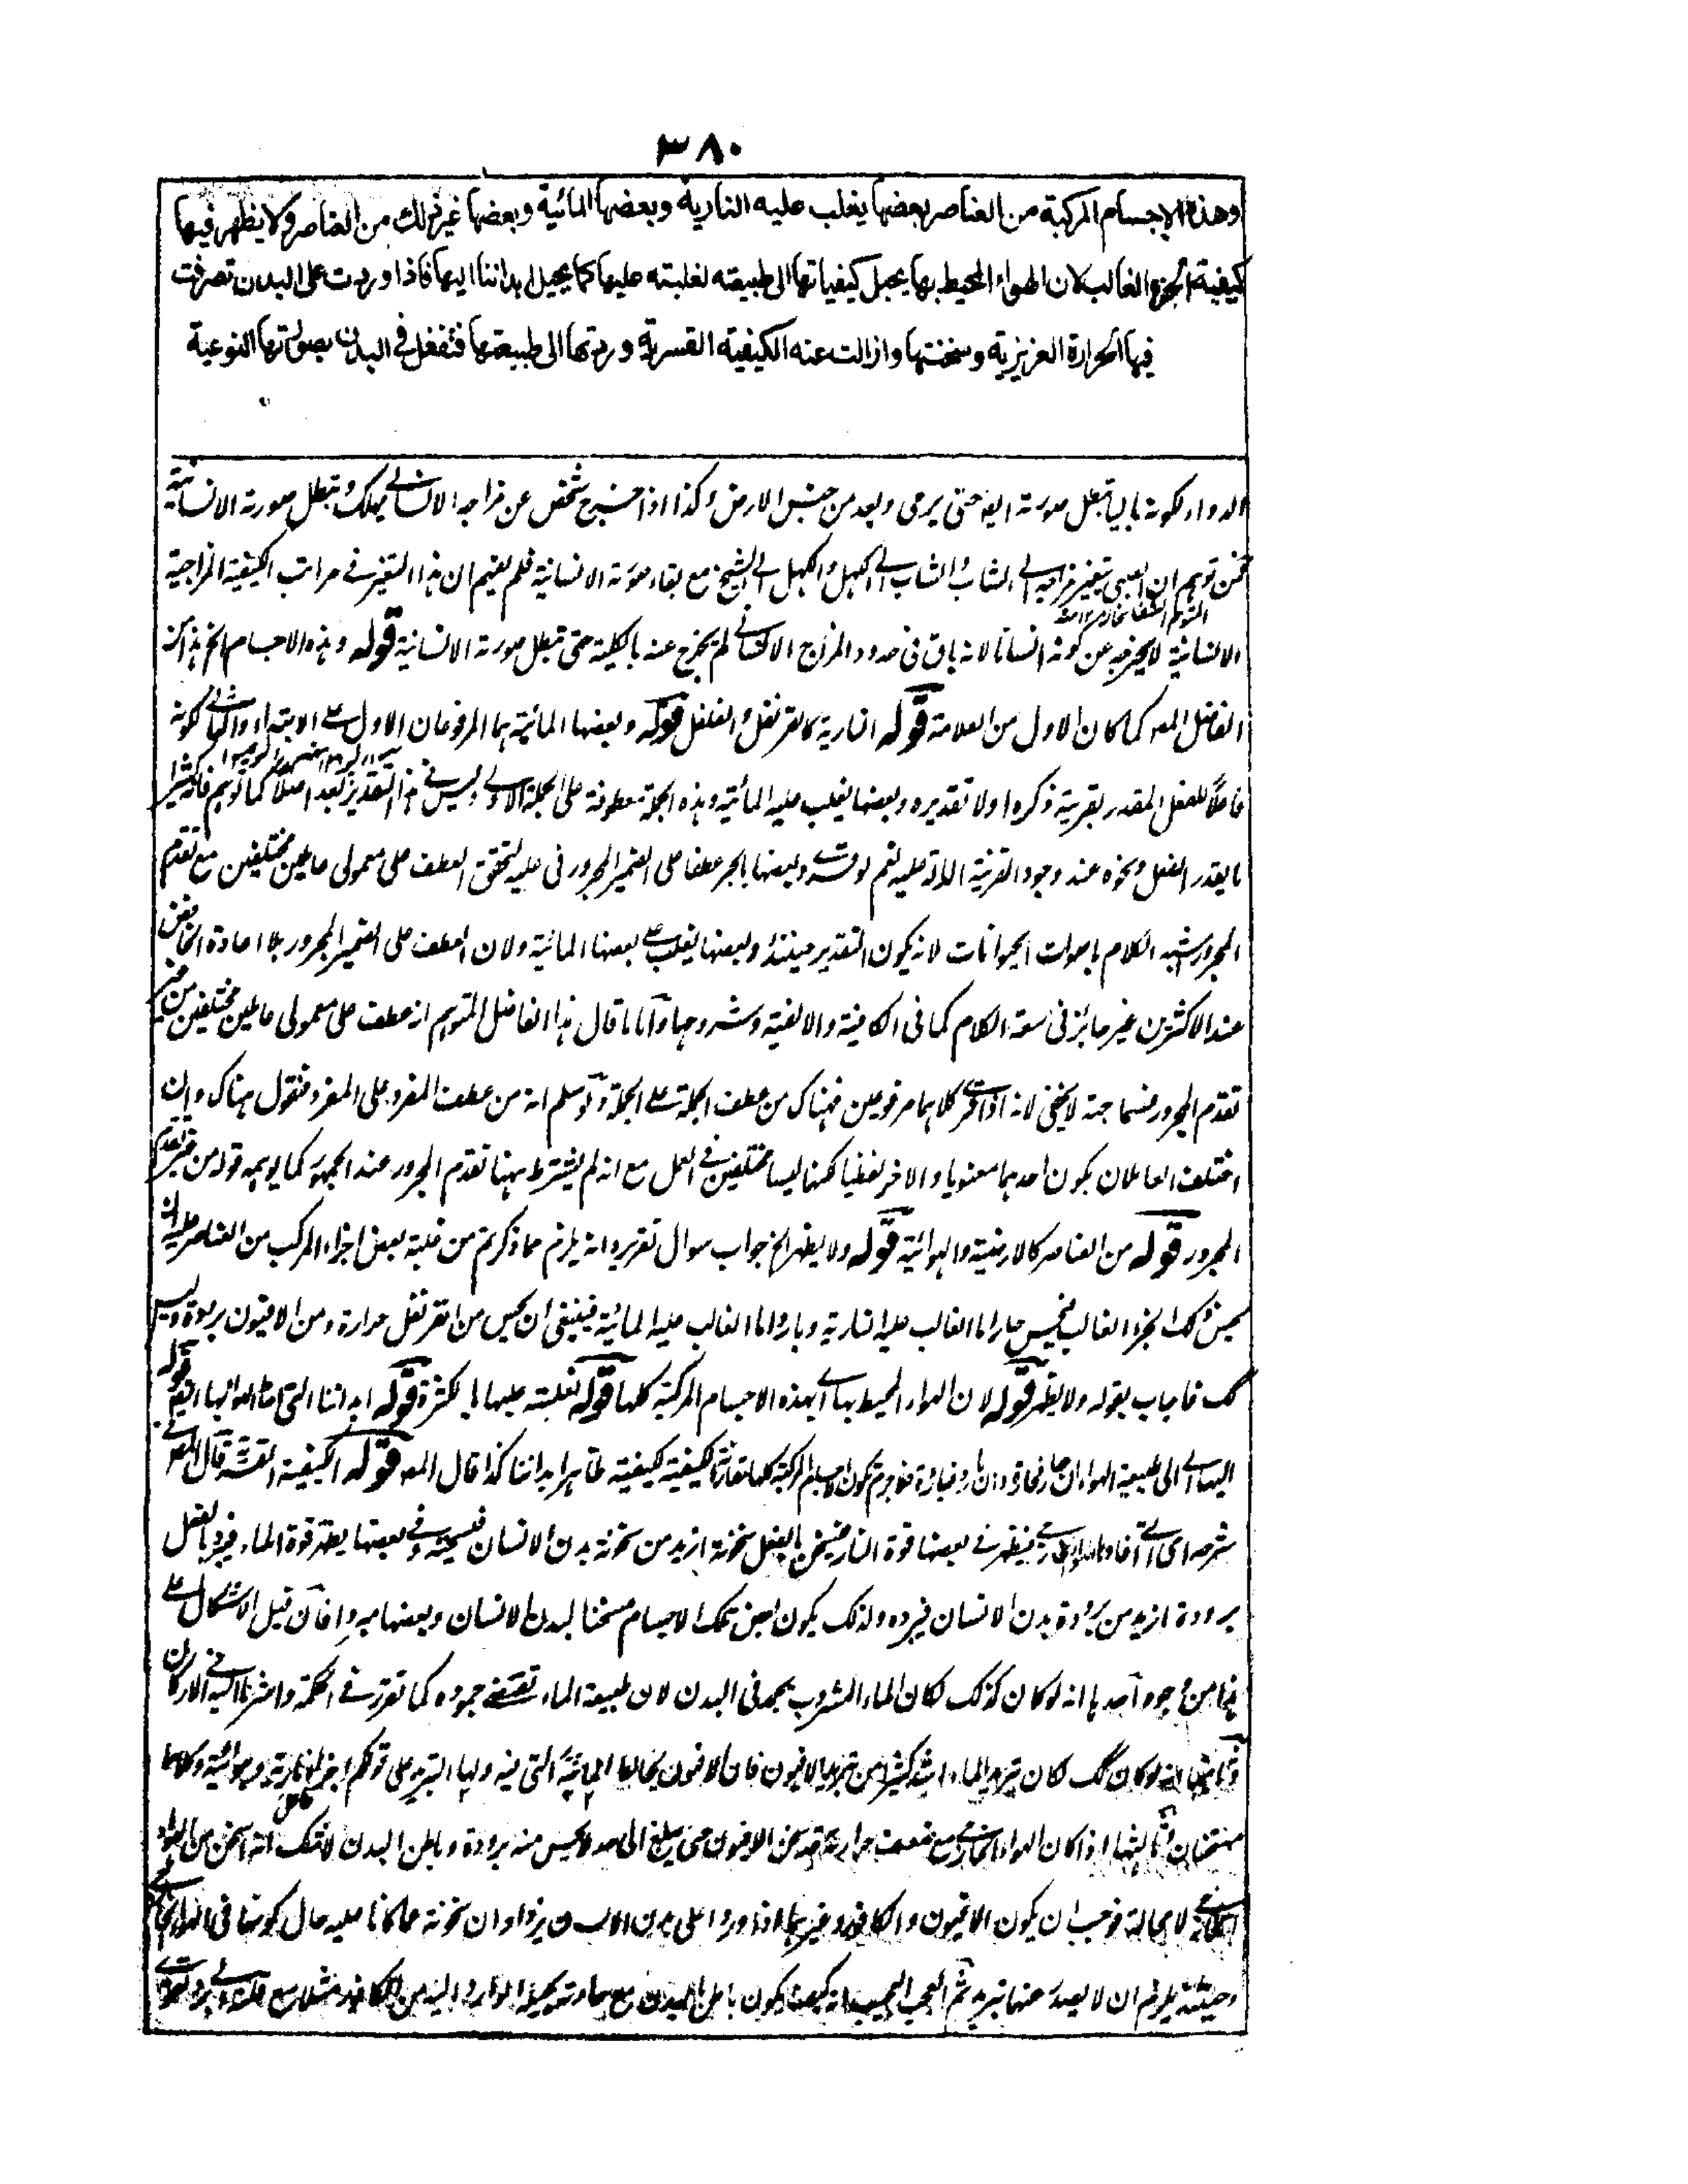 ٣٨٠
وهذه الاجسام المركبة من العناصر بعضها يغلب عليه النارية وبعضها المائية وبعضها غير ذلك من العناصر ولا يظهر فيها
كيفية الجزء الغالب لان الهواء المحيط بها يحيل كيفياتها الى طبيعته لغلبته عليها كما يحيل ابداننا اليها فاذا وردت على البدن تصرفت
فيها الحرارة الغريزية وسخنتها وازالت عنه الكيفية القسرية وردتها الى طبيعتها فتفعل فى البدن بصورتها النوعية
الدواء لكونه باليا تبطل صورته ايضا حتى يرمى ويعد من جنس الارض وكذا اذا خرج شخص عن مزاجه الانسانى يهلك وتبطل صورته الانسانية
فمن توهم ان الصبى يتغير مزاجه الى الشاب والشاب الى الكهل والكهل الى الشيخ مع بقاء صورته الانسانية فلم يفهم ان هذا التغير فى مراتب الكيفية المزاجية
الانسانية لا يخرجه عن كونه انسانا لانه باق فى حدود المزاج الانسانى لم يخرج عنه بالكلية حتى تبطل صورته الانسانية قوله وهذه الاجسام الخ
الفاضل المص كما كان الاول من العلامة قوله النارية كالقرنفل والفلفل قوله وبعضها المائية هما المرفوعان الاول على الابتداء والثانى لكونه
فاعلا للفعل المقدر بقرينة ذكره اولا تقديره وبعضها يغلب عليه المائية وهذه الجملة معطوفة على الجملة الاولى وليس فى هذا التقدير بعد اصلا كما توهم
ما يقدر الفعل ونحوه عند وجود القرينة الدالة عليه نعم لو قرئ وبعضها بالجر عطفا على الضمير المجرور فى عليه لتحقق العطف على معمولى عاملين مختلفين مع تقدم
المجرور الكلام باصوات الحيوانات لانه يكون التقدير حينئذ وبعضها يغلب على بعضها المائية ولان العطف على الضمير المجرور بلا اعادة الخافض
عند الاكثرين غير جائز فى سعة الكلام كما فى الكافية والالفية وشروحها واما ما قال هذا الفاضل المتوهم انه عطف على معمولى عاملين مختلفين من غير
تقدم المجرور لا يخفى لانه كلاهما مرفوعين فهناك من عطف الجملة على الجملة ولو سلم انه من عطف المفرد على المفرد فنقول هناك وان
اختلف العاملان بكون احدهما معنويا والاخر لفظيا لكنها ليسا مختلفين فى العمل مع انه لم يشترط ههنا تقدم المجرور عند الجمهور كما يوهمه قوله من غير تقدم
المجرور قوله من العناصر كالارضية والهوائية قوله ولا يظهر الخ جواب سوال تقريره انه يلزم مما ذكرتم من غلبة بعض اجزاء المركب من العناصر عليه ان
الجزء الغالب فيحس حارا ما الغالب عليه النارية وباردا ما الغالب عليه المائية فينبغى ان يحس من القرنفل حرارة ومن الافيون برودة وليس
كك فاجاب بقوله ولا يظهر قوله لان الهواء المحيط بها اى بهذه الاجسام المركبة كلها قوله لغلبته عليها بالكثرة قوله ابداننا التى قوله
اليها اى الى طبيعة الهواء ان كيفيته كيفية ظاهر ابداننا كذا قال المص قوله الكيفية القسرية قال
فيظهر فى بعضها قوة النار فيسخن بالفعل سخونة ازيد من سخونة بدن الانسان فيسخنه وفى بعضها يظهر قوة الماء فيبرد بالفعل
برودة ازيد من برودة بدن الانسان فيبرده ولذلك يكون بعض تلك الاجسام مسخنا لبدن الانسان وبعضها مبردا فان قيل الاشكال على
هذا من وجوه احدها انه لو كان كذلك لكان الماء المشروب يجمد فى البدن لان طبيعة الماء تقتضى جموده كما تقرر فى الحكمة واشرنا اليه فى الاركان
وثانيها انه لو كان كك لكان تبريد الماء اشد كثيرا من تبريد الافيون فان الافيون يخالط المائية التى فيه ولها التبريد على قولكم اجزاء نارية وهوائية وكلاهما
مسخنان وثالثها اذا كان الهواء الخارجى مع ضعف حرارته قد سخن الافيون حتى يبلغ الى حد لا يحس منه برودة وباطن البدن لا شك انه اسخن من الهواء
الخارجى لا محالة فوجب ان يكون الافيون والكافور وغيرهما اذا وردا على بدن الانسان يزدادان سخونة عما كانا عليه حال كونهما فى الهواء
وحينئذ يلزم ان لا يصدر عنها تبريد ثم العجب العجيب انه كيف يكون باطن البدن مع الوارد اليه من الكافور مثلا مع قلته